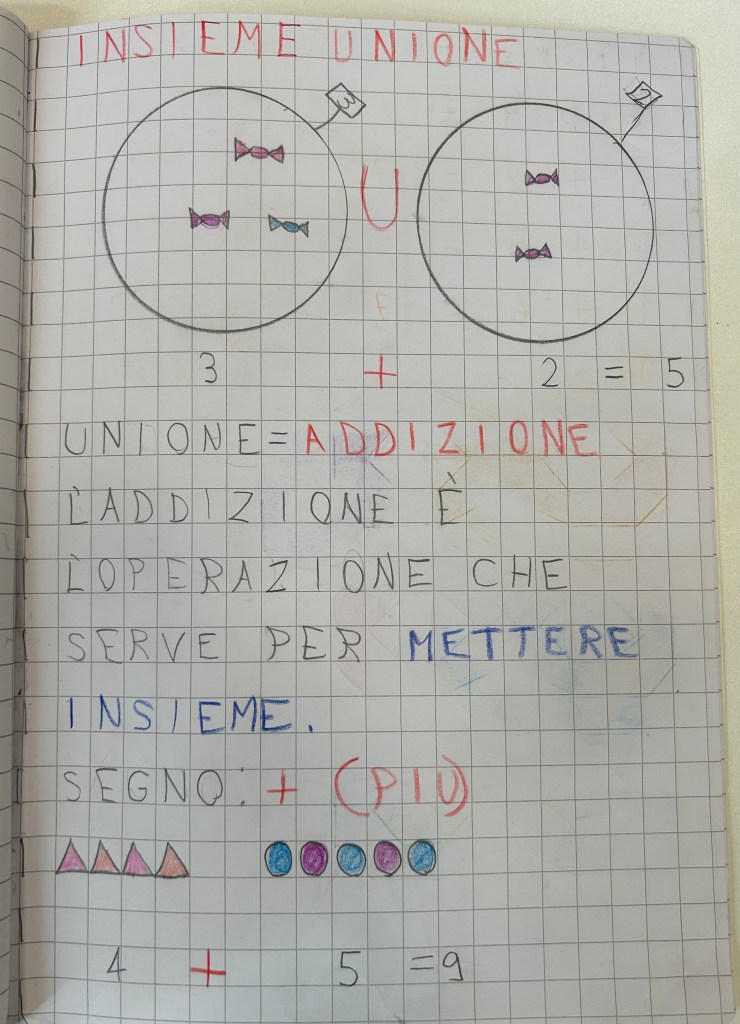 INSIEME UNIONE
3 2
U
3 + 2 = 5
UNIONE = ADDIZIONE
L'ADDIZIONE È
L'OPERAZIONE CHE
SERVE PER METTERE
INSIEME.
SEGNO: + (PIU)
4 + 5 = 9